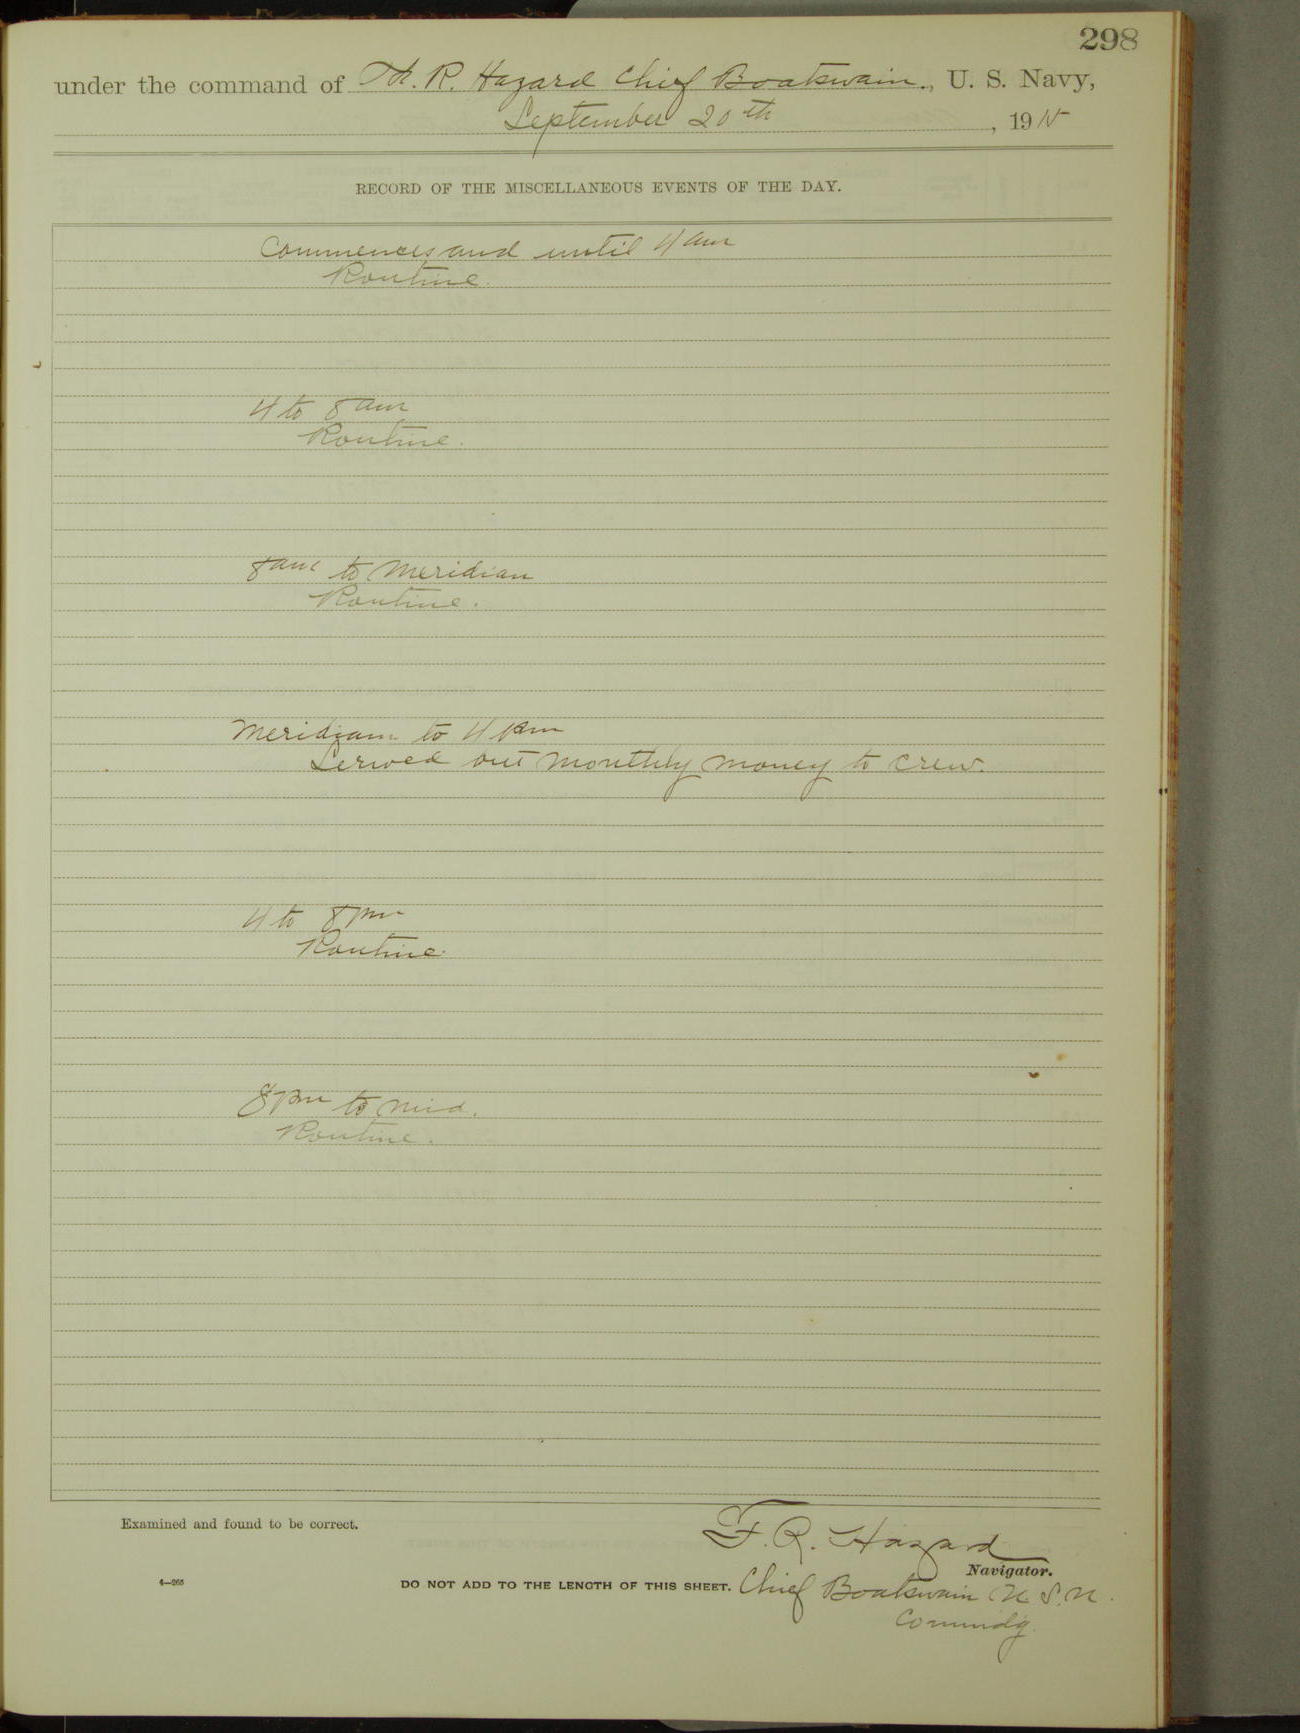 298
under the command of F. R. Hazard Chief Boatswain., U. S. Navy,
September 20th, 1915
RECORD OF THE MISCELLANEOUS EVENTS OF THE DAY.
Commences and until 4 am
Routine.
4 to 8 am
Routine.
8 am to Meridian
Routine.
Meridian to 4 pm
Served out monthly money to crew.
4 to 8 pm
Routine.
8 pm to mid.
Routine.
Examined and found to be correct.
F. R. Hazard
Navigator.
4—265
DO NOT ADD TO THE LENGTH OF THIS SHEET. Chief Boatswain U. S. N.
Commdg.